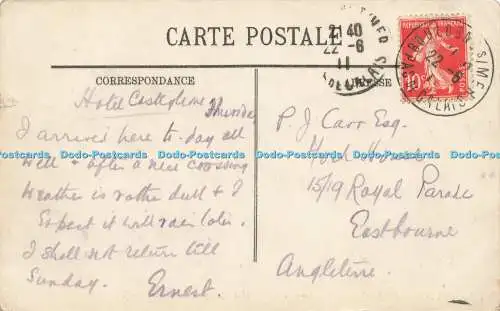 CARTE POSTALE
CORRESPONDANCE
ADRESSE
21 40
22 - 6
11
REPUBLIQUE FRANÇAISE
10
22 - 6
11
Hotel
Thursday
I arrived here to-day all
well & after a nice crossing
Weather is rather dull & I
Expect it will rain later.
I shall not return till
Sunday. Ernest.
P. J. Carr Esq.
15/19 Royal Parade
Eastbourne
Angleterre
Dodo-Postcards Dodo-Postcards Dodo-Postcards Dodo-Postcards Dodo-Postcards Dodo-Postcards Dodo-Postcards